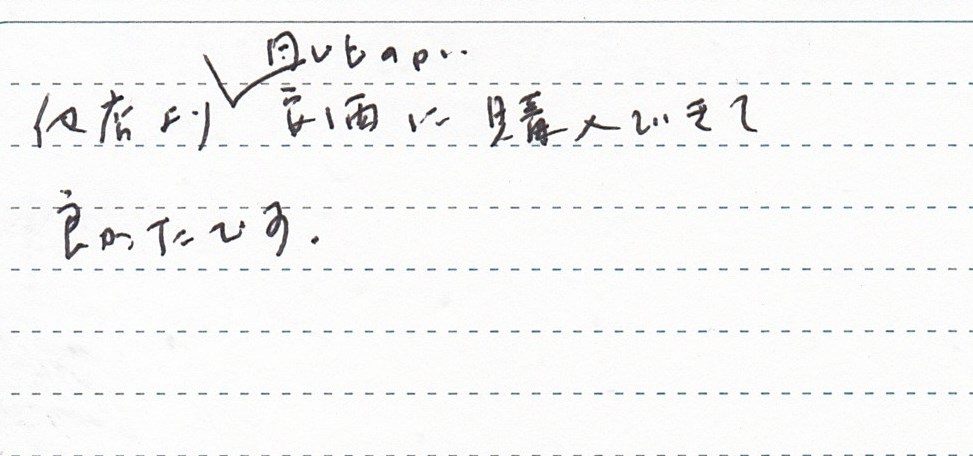 同じものが
他店より安価に購入できて
良かったです.